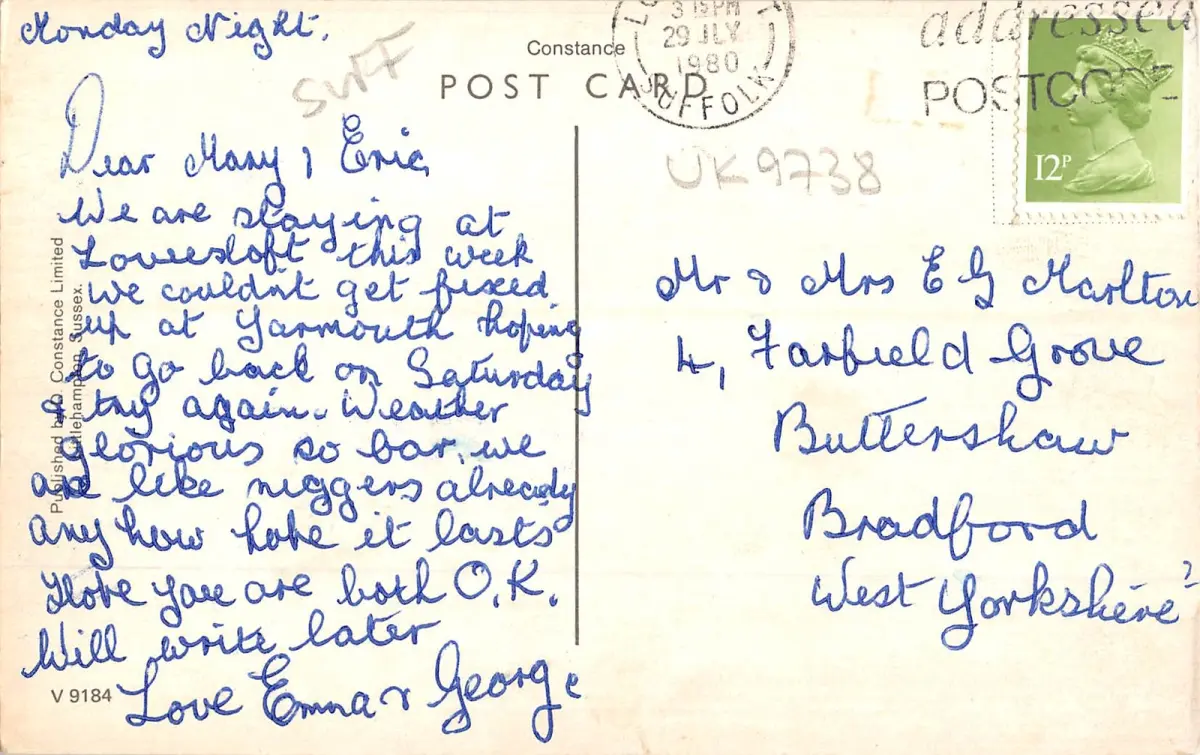 Monday Night.
SUFF
Constance
POST CARD
3 15PM
29 JLY
1980
SUFFOLK
addressed
POSTCODE
12P
UK9738
Dear Mary & Eric,
We are staying at
Lowesloft this week
we couldn't get fixed
up at Yarmouth hoping
to go back on Saturday
& try again. Weather
glorious so far, we
are like niggers already
anyhow hope it lasts
Hope you are both O.K.
Will write later
Love Emma & George
Mr & Mrs E G Marlton
4, Farfield Grove
Buttershaw
Bradford
West Yorkshire
Published by D. Constance Limited
Littlehampton, Sussex.
V 9184